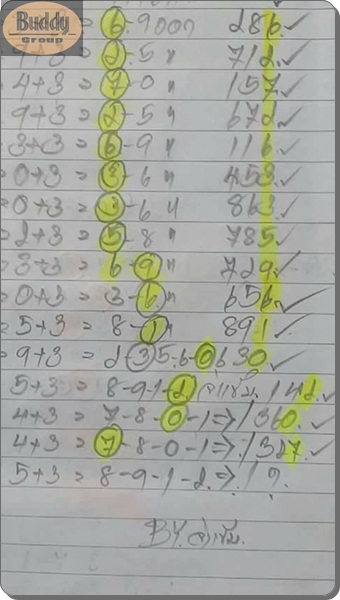 Buddy
Group
6-9ออก 286 ✓
9+3 = 2-5 " 712 ✓
4+3 = 7-0 " 157 ✓
9+3 = 2-5 " 672 ✓
3+3 = 6-9 " 116 ✓
0+3 = 3-6 " 453 ✓
0+3 = 3-6 " 863 ✓
2+3 = 5-8 " 785 ✓
3+3 = 6-9 " 729 ✓
0+3 = 3-6 " 656 ✓
5+3 = 8-1 " 891 ✓
9+3 = 2-3 5-6-0 630 ✓
5+3 = 8-9-1-2 142 ✓
4+3 = 7-8-0-1 => 1360 ✓
4+3 = 7-8-0-1 => 1327 ✓
5+3 = 8-9-1-2 => 1?
BY.